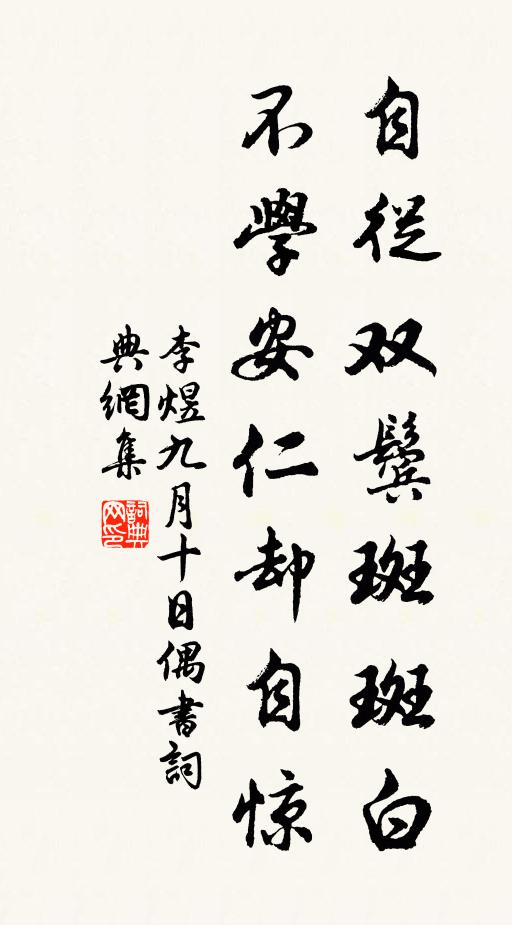 自從双鬢斑斑白
不學安仁却自惊
李煜九月十日偶書詞
典網集
詞典網印